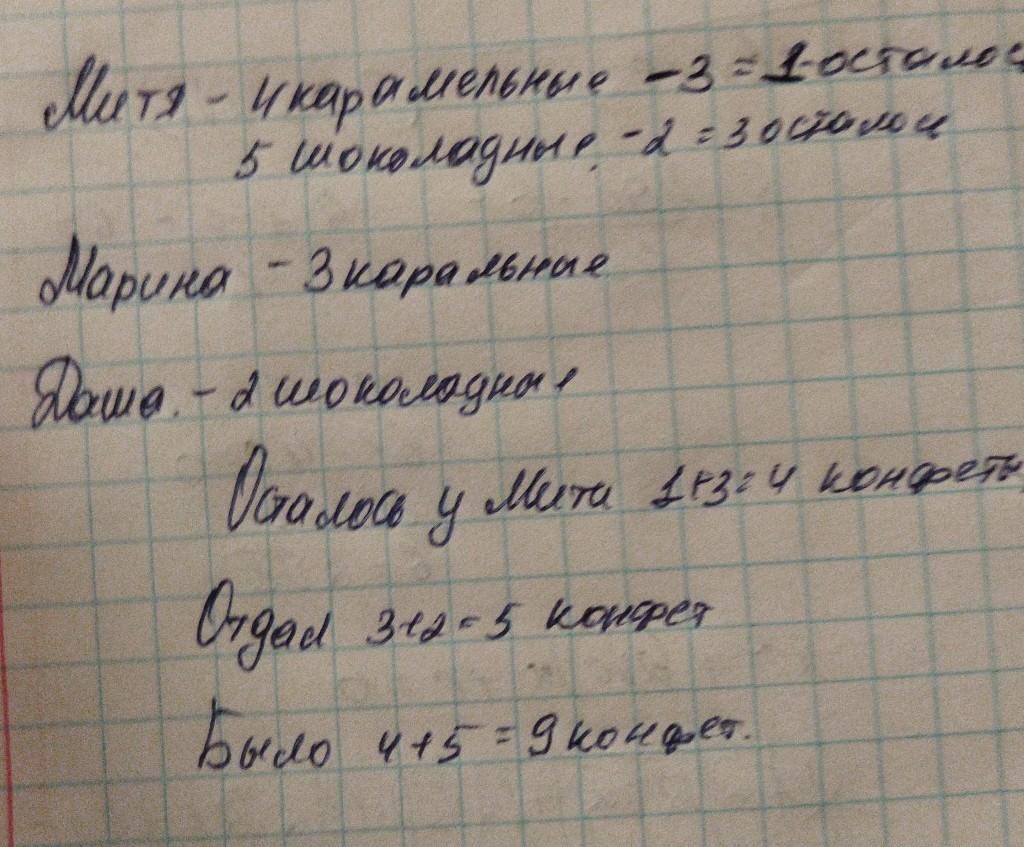 Митя - 4 карамельные - 3 = 1 осталос
5 шоколадные - 2 = 3 осталос
Марина - 3 каральные
Даша. - 2 шоколадные
Осталось у Мити 1+3=4 конфеты
Отдал 3+2=5 конфет
Было 4+5=9 конфет.